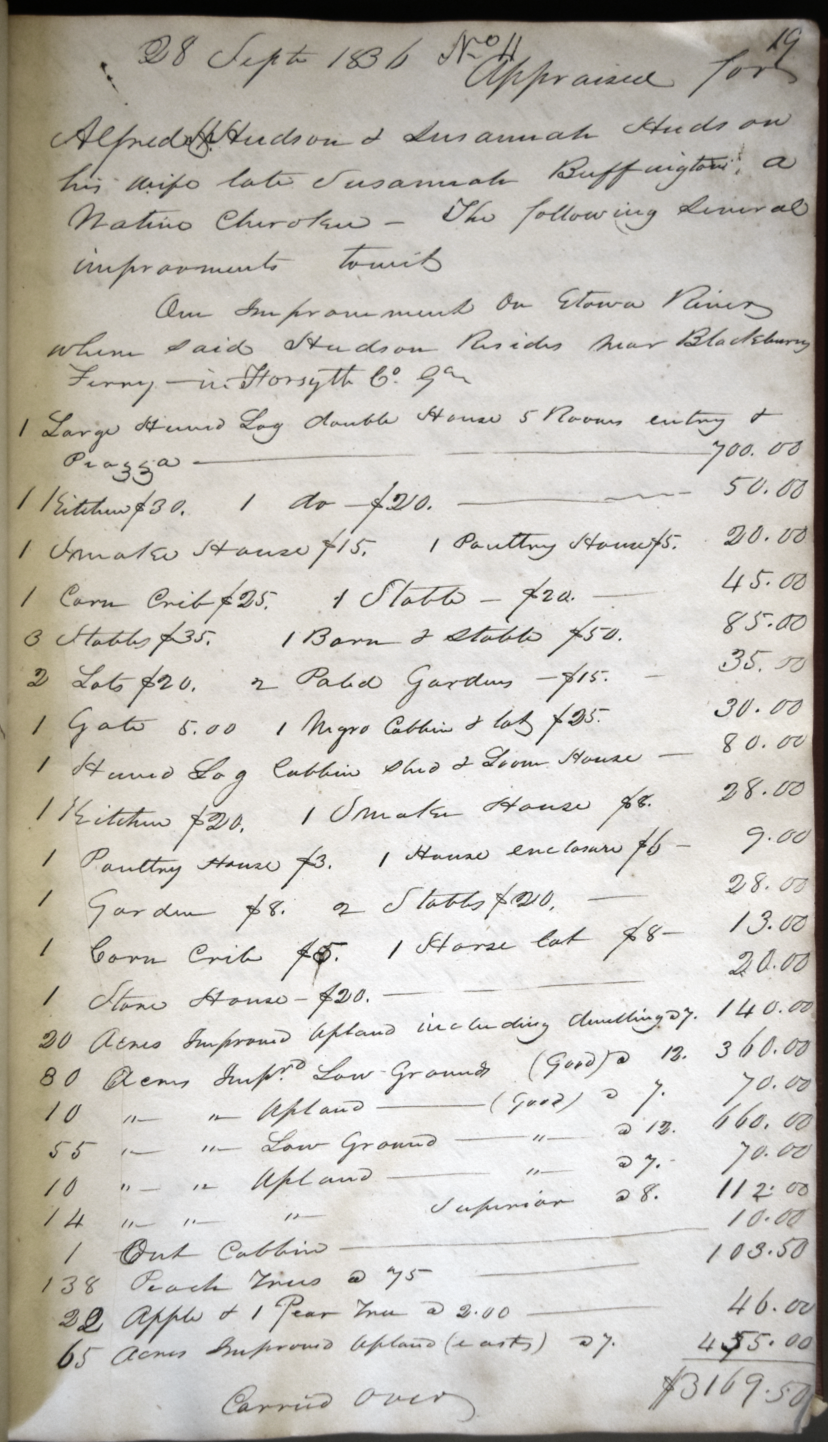 19
28 Septr 1836 No 11
Appraised for
Alfred Hudson & Susannah Hudson
his wife late Susannah Buffington, a
Native Cherokee - The following several
improvments towit
One Improvement on Etowa River
where said Hudson Resides near Blackburns
Ferry - in Forsyth Co. Ga
1 Large Hewed Log double House 5 Rooms entry &
Piazza 700.00
1 Kitchen $30. 1 do - $20. 50.00
1 Smoke House $15. 1 Poultry House $5. 20.00
1 Corn Crib $25. 1 Stable - $20. 45.00
3 Stables $35. 1 Barn & Stable $50. 85.00
2 Lots $20. 2 Paled Gardens - $15. 35.00
1 Gate 5.00 1 Negro Cabbin & lot $25. 30.00
1 Hewed Log Cabbin Shed & Loom House - 80.00
1 Kitchen $20. 1 Smoke House $8. 28.00
1 Poultry House $3. 1 House enclosure $6 - 9.00
1 Garden $8. 2 Stables $20. 28.00
1 Corn Crib $5. 1 Horse lot $8 - 13.00
1 Stone House - $20. 20.00
20 Acres Improved Upland including dwelling @ 7. 140.00
30 Acres Impr.d Low Grounds (Good) @ 12. 360.00
10 " " Upland (Good) @ 7. 70.00
55 " " Low Ground " @ 12. 660.00
10 " " Upland " @ 7. 70.00
14 " " " Superior @ 8. 112.00
1 Out Cabbin 10.00
138 Peach Trees @ 75 103.50
22 Apple & 1 Pear Tree @ 2.00 46.00
65 Acres Improved Upland @ 7. 455.00
Carried Over $3169.50